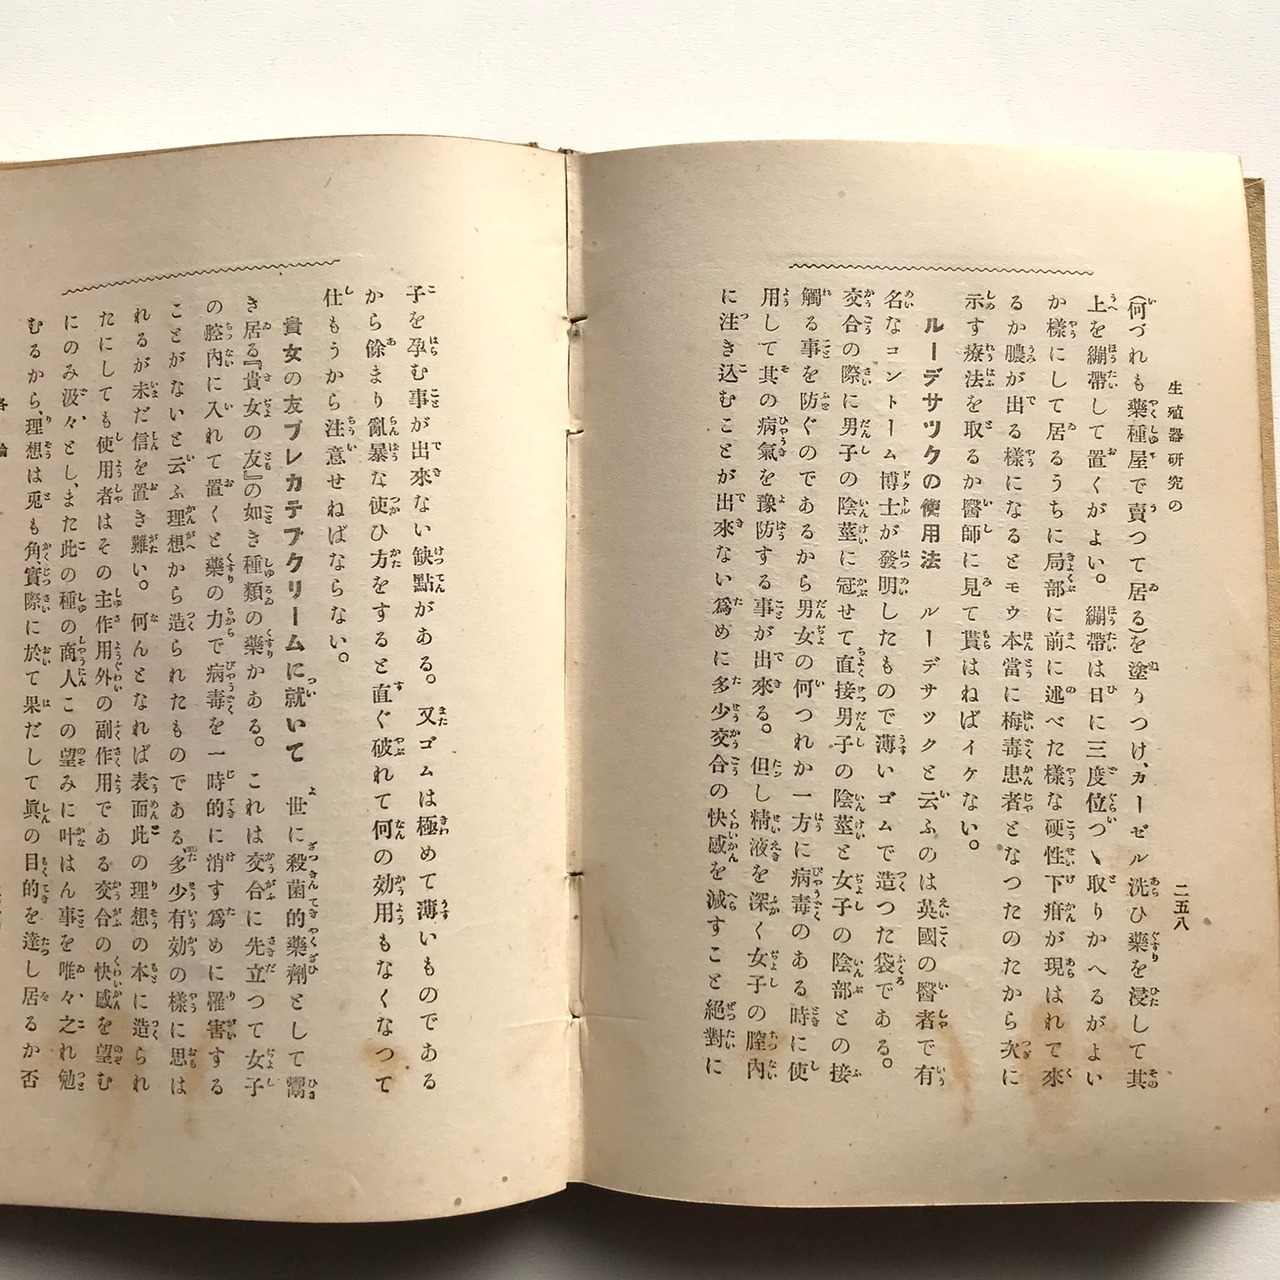 生殖器研究の
二五八
(何づれも藥種屋で賣つて居る)を塗りつけ、ガーゼル洗ひ藥を浸して其
上を繃帶して置くがよい。繃帶は日に三度位づゝ取りかへるがよい
か樣にして居るうちに局部に前に述べた樣な硬性下疳が現はれて來
るか膿が出る樣になるとモウ本當に梅毒患者となつたのだから次に
示す療法を取るか醫師に見て貰はねばイケない。
ルーデサツクの使用法 ルーデサックと云ふのは英國の醫者で有
名なコントーム博士が發明したもので薄いゴムで造つた袋である。
交合の際に男子の陰莖に冠せて直接男子の陰莖と女子の陰部との接
觸る事を防ぐのであるから男女の何つれか一方に病毒のある時に使
用して其の病氣を豫防する事が出來る。但し精液を深く女子の膣內
に注き込むことが出來ない爲めに多少交合の快感を減すこと絕對に
子を孕む事が出來ない缺點がある。又ゴムは極めて薄いものである
から餘まり亂暴な使ひ方をすると直ぐ破れて何の効用もなくなつて
仕もうから注意せねばならない。
貴女の友プレカテブクリームに就いて 世に殺菌的藥劑として鬻
き居る『貴女の友』の如き種類の藥かある。これは交合に先立つて女子
の腔內に入れて置くと藥の力で病毒を一時的に消す爲めに罹害する
ことがないと云ふ理想から造られたものである、多少有効の樣に思は
れるが未だ信を置き難い。何んとなれば表面此の理想の本に造られ
たにしても使用者はその主作用外の副作用である交合の快感を望む
にのみ汲々とし、また此の種の商人この望みに叶はん事を唯々之れ勉
むるから、理想は兎も角、實際に於て果だして眞の目的を達し居るか否